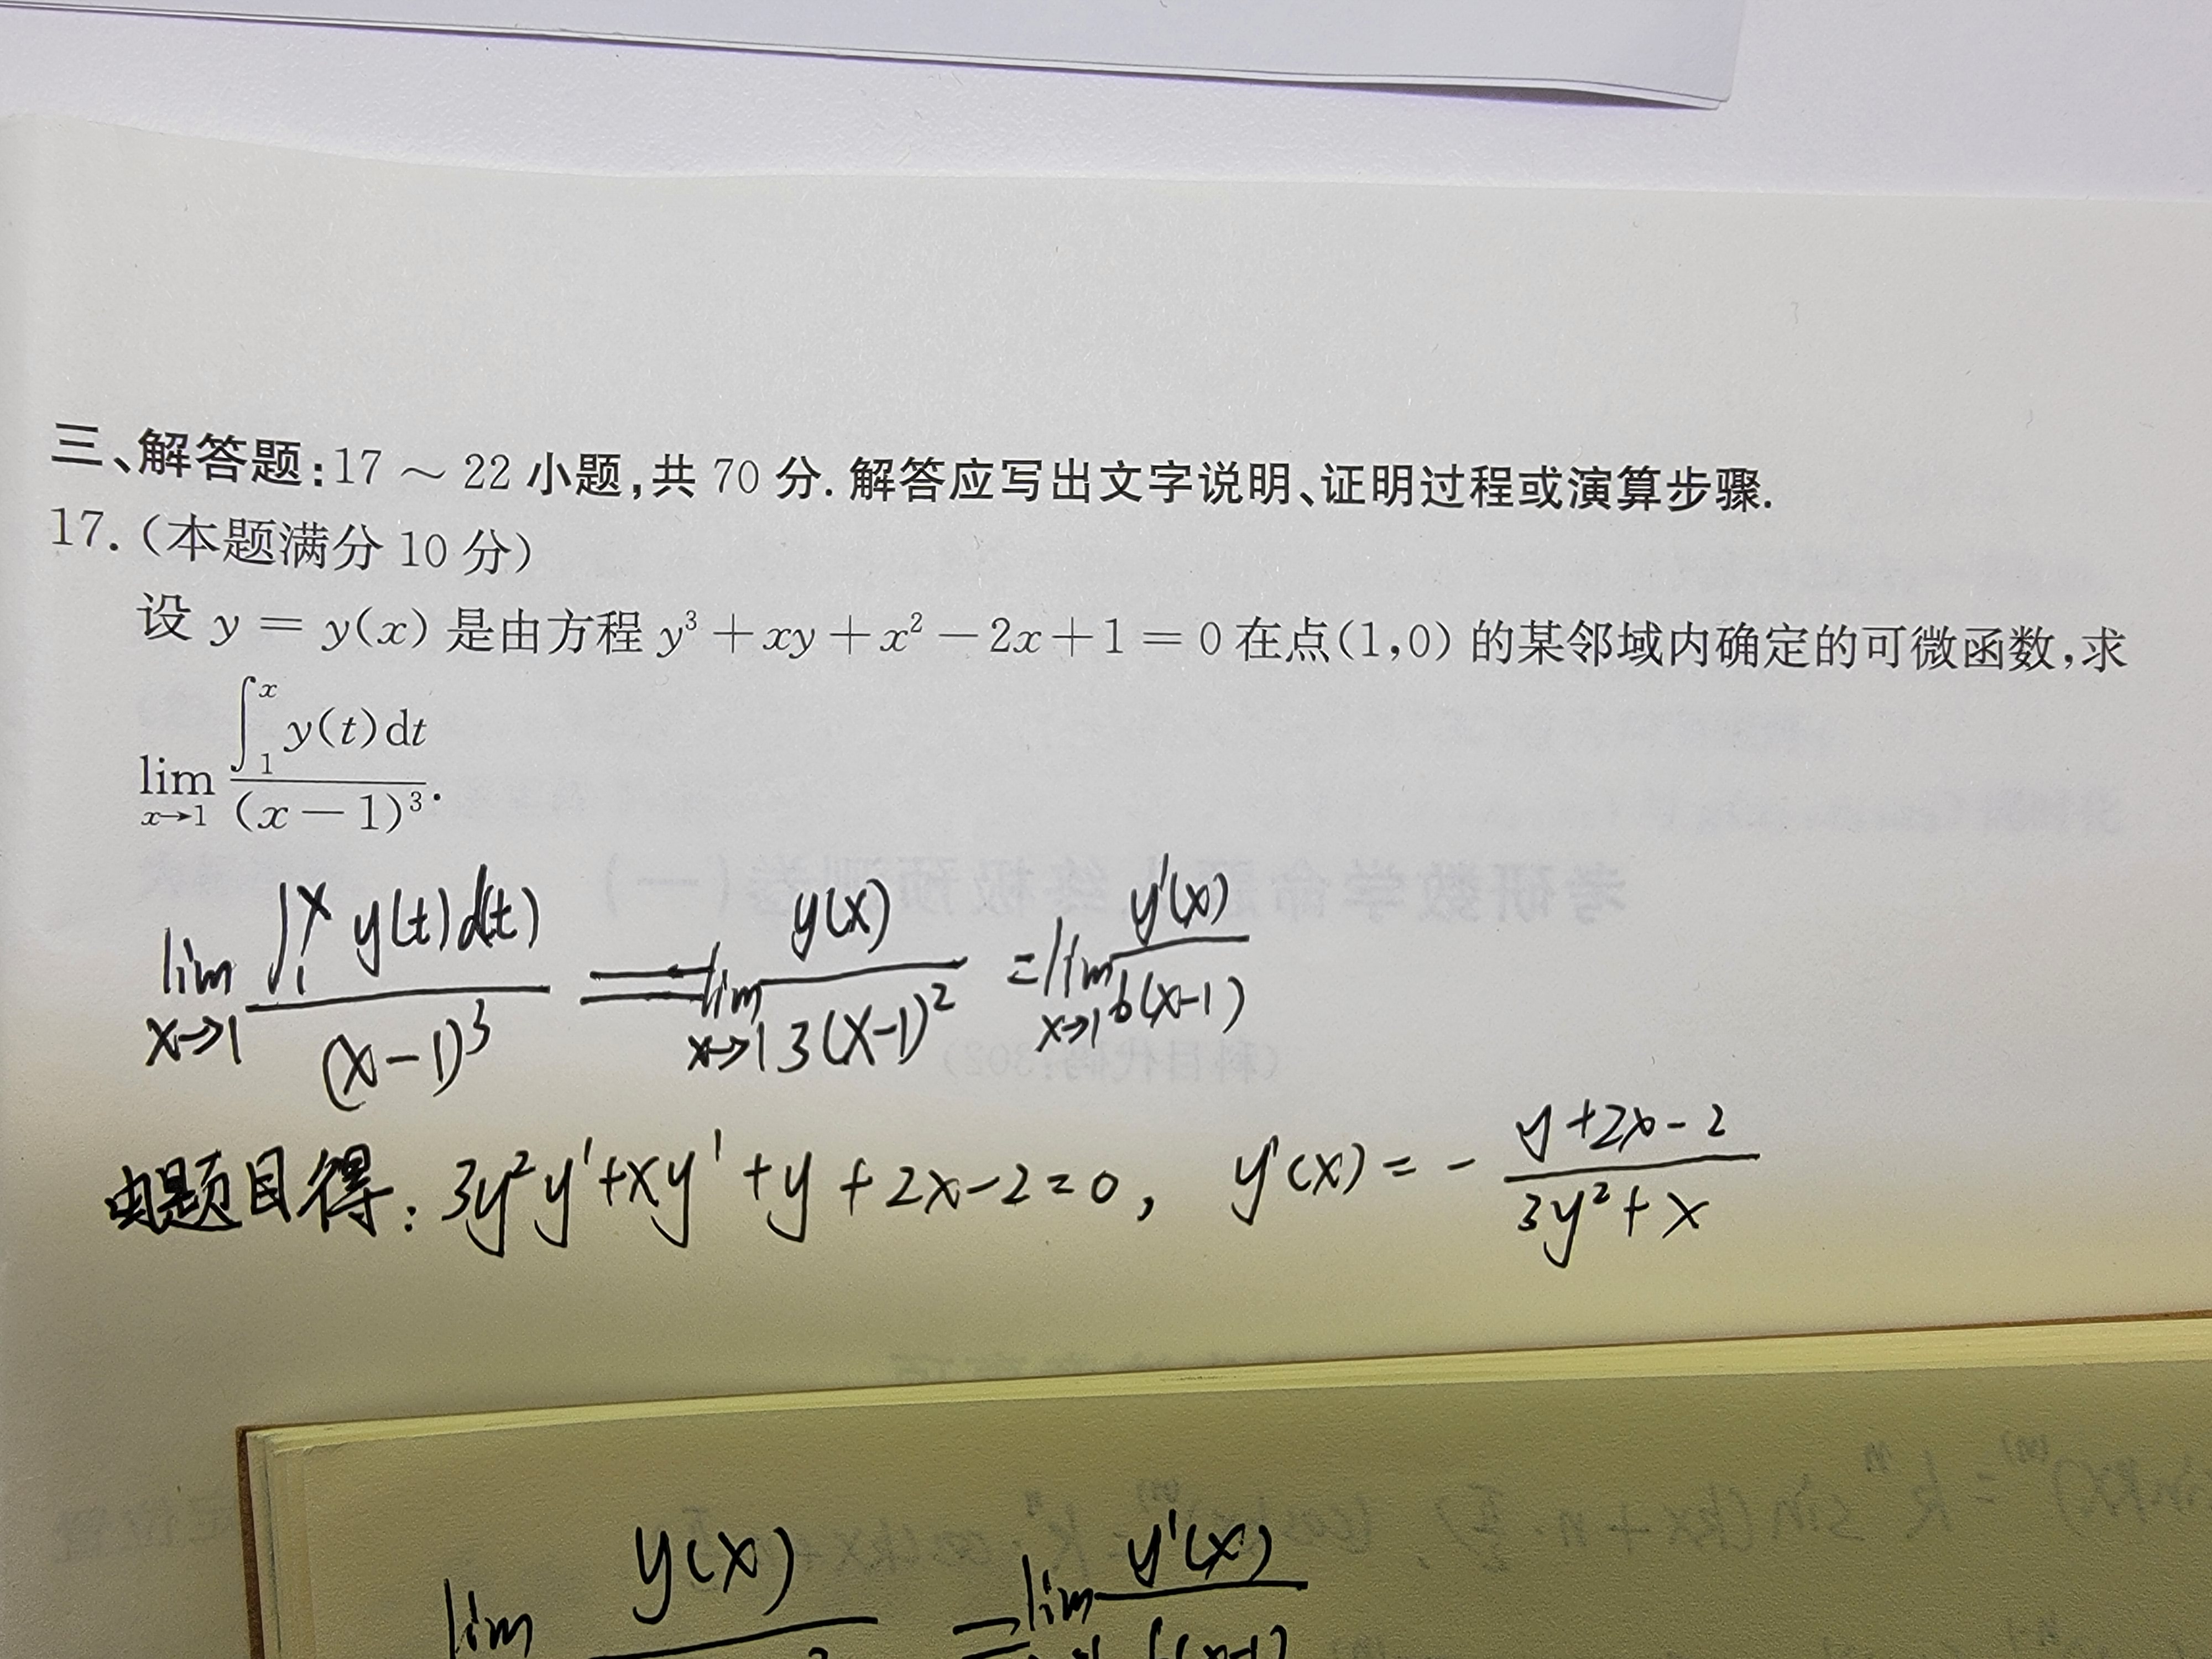 三、解答题:17 ~ 22 小题,共 70 分. 解答应写出文字说明、证明过程或演算步骤.
17. (本题满分 10 分)
设 y = y(x) 是由方程 y³ + xy + x² − 2x + 1 = 0 在点(1,0) 的某邻域内确定的可微函数,求
lim_{x→1} ∫_1^x y(t)dt / (x − 1)³.
lim_{x→1} ∫_1^x y(t)d(t) / (x−1)³ = lim_{x→1} y(x) / 3(x−1)² = lim_{x→1} y'(x) / 6(x−1)
由题目得: 3y²y'+xy'+y+2x−2=0, y'(x) = − (y+2x−2) / (3y²+x)
lim y(x) = lim y'(x) / 6(x−1)